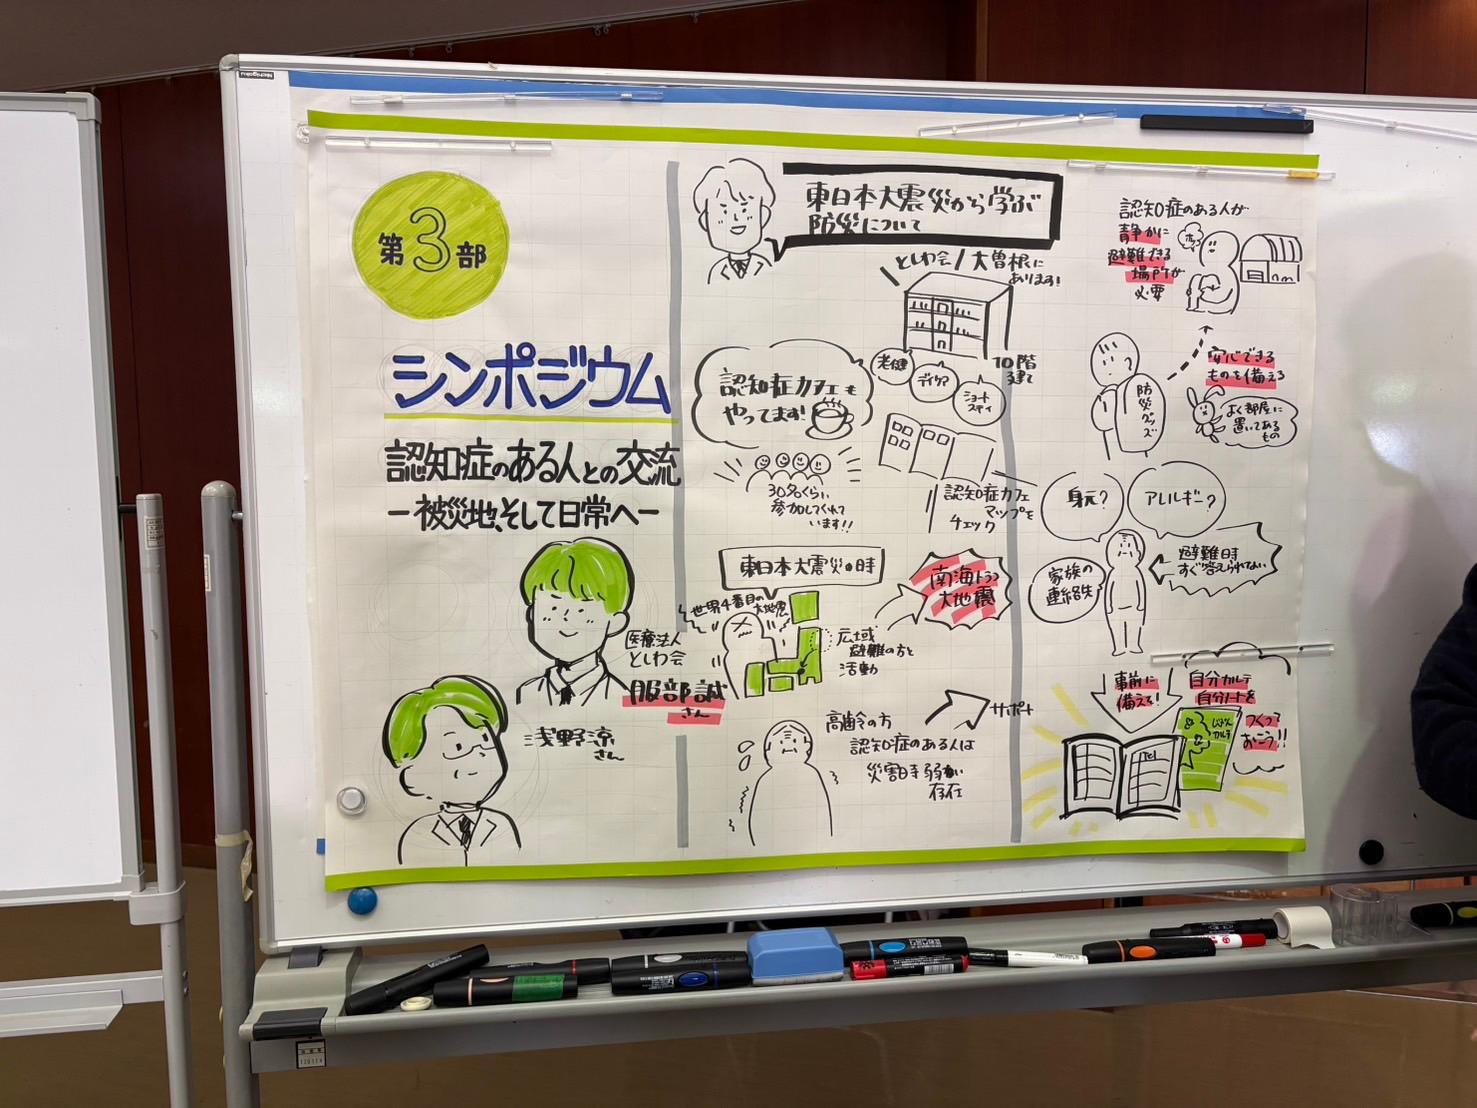 第3部
シンポジウム
認知症のある人との交流
ー被災地、そして日常へー
医療法人
としわ会
服部誠
さん
浅野涼
さん
東日本大震災から学ぶ
防災について
としわ会/大曽根に
あります!
老健
デイケア
ショート
ステイ
10階
建て
認知症カフェも
やってます!
30名くらい
参加してくれて
います!!
認知症カフェ
マップを
チェック
東日本大震災の時
世界4番目の
大地震
南海トラフ
大地震
広域
避難の方と
活動
高齢の方
認知症のある人は
災害時弱い
存在
サポート
認知症のある人が
静かに
避難できる
場所が
必要
ホッ
安心できる
ものを備える
防災グッズ
よく部屋に
置いてある
もの
身元?
アレルギー?
家族の
連絡先
避難時
すぐ答えられない
事前に
備えを!
自分カルテ
自分ノートを
つくって
おこう!!
じぶん
カルテ
Tel
Nichigaku